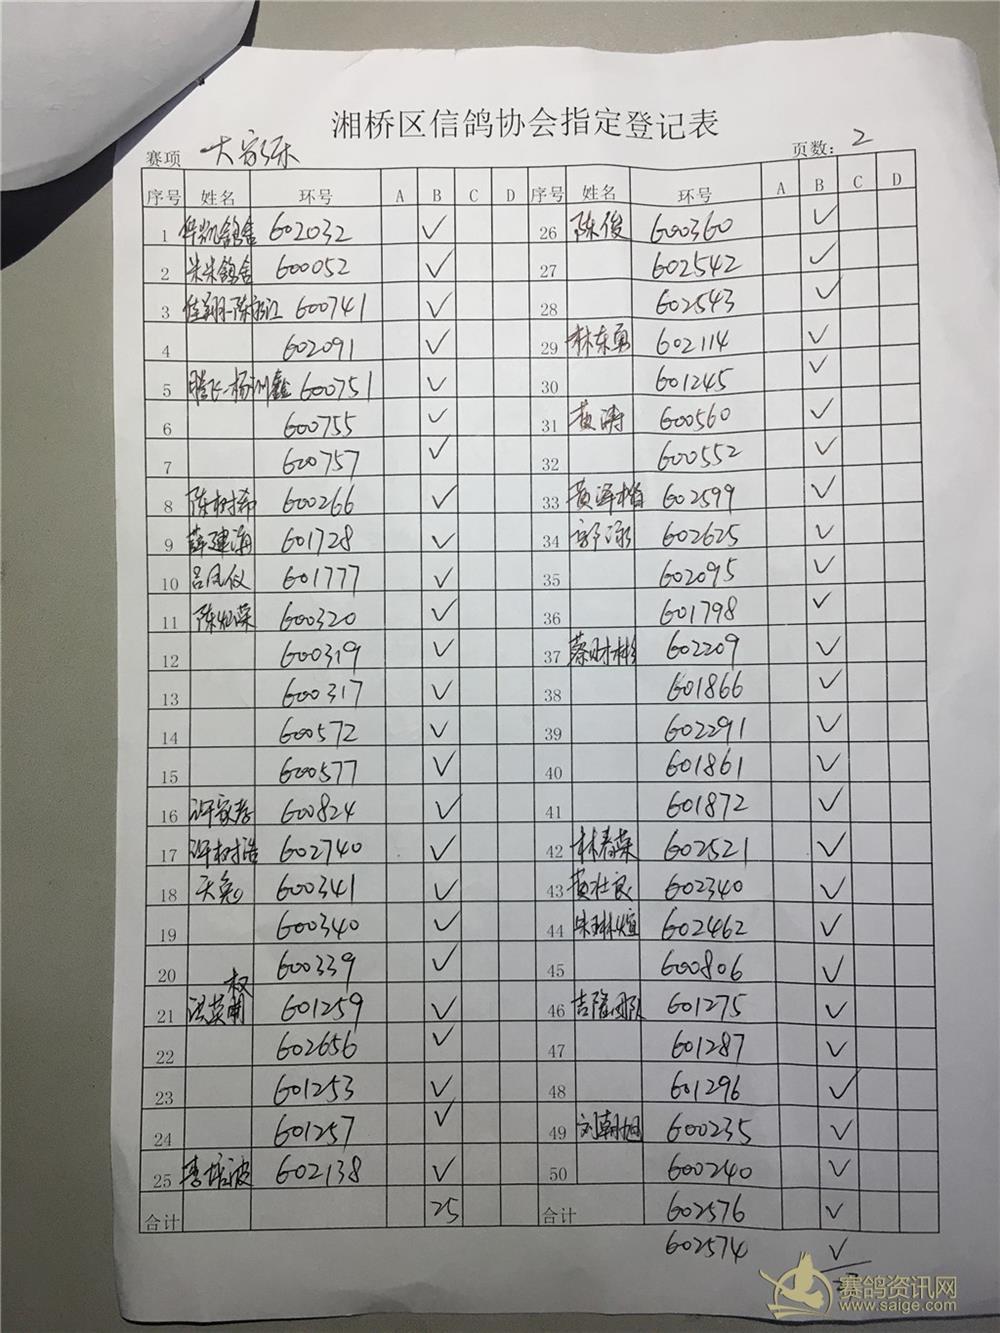 湘桥区信鸽协会指定登记表
赛项 大家乐 页数: 2
序号 姓名 环号 A B C D
1 华凯鸽舍 602032 ✓
2 米米鸽舍 600052 ✓
3 佳翔-陈松江 600741 ✓
4 602091 ✓
5 腾飞-杨训鑫 600751 ✓
6 600755 ✓
7 600757 ✓
8 陈树希 600266 ✓
9 薛建海 601728 ✓
10 吕凤仪 601777 ✓
11 陈灿荣 600320 ✓
12 600319 ✓
13 600317 ✓
14 600572 ✓
15 600577 ✓
16 许家孝 600824 ✓
17 许树浩 602740 ✓
18 600341 ✓
19 600340 ✓
20 600339 ✓
21 洪英 权 601259 ✓
22 602656 ✓
23 601253 ✓
24 601257 ✓
25 李培波 602138 ✓
合计 25
序号 姓名 环号 A B C D
26 陈俊 600360 ✓
27 602542 ✓
28 602543 ✓
29 林东勇 602114 ✓
30 601245 ✓
31 黄涛 600560 ✓
32 600552 ✓
33 黄泽楷 602599 ✓
34 郭泳 602625 ✓
35 602095 ✓
36 601798 ✓
37 蔡财彬 602209 ✓
38 601866 ✓
39 602291 ✓
40 601861 ✓
41 601872 ✓
42 林春荣 602521 ✓
43 黄壮良 602340 ✓
44 朱琳煊 602462 ✓
45 600806 ✓
46 吉隆团队 601275 ✓
47 601287 ✓
48 601296 ✓
49 刘朝旭 600235 ✓
50 600240 ✓
合计 602576 ✓
602574 ✓
赛鸽资讯网
www.saige.com